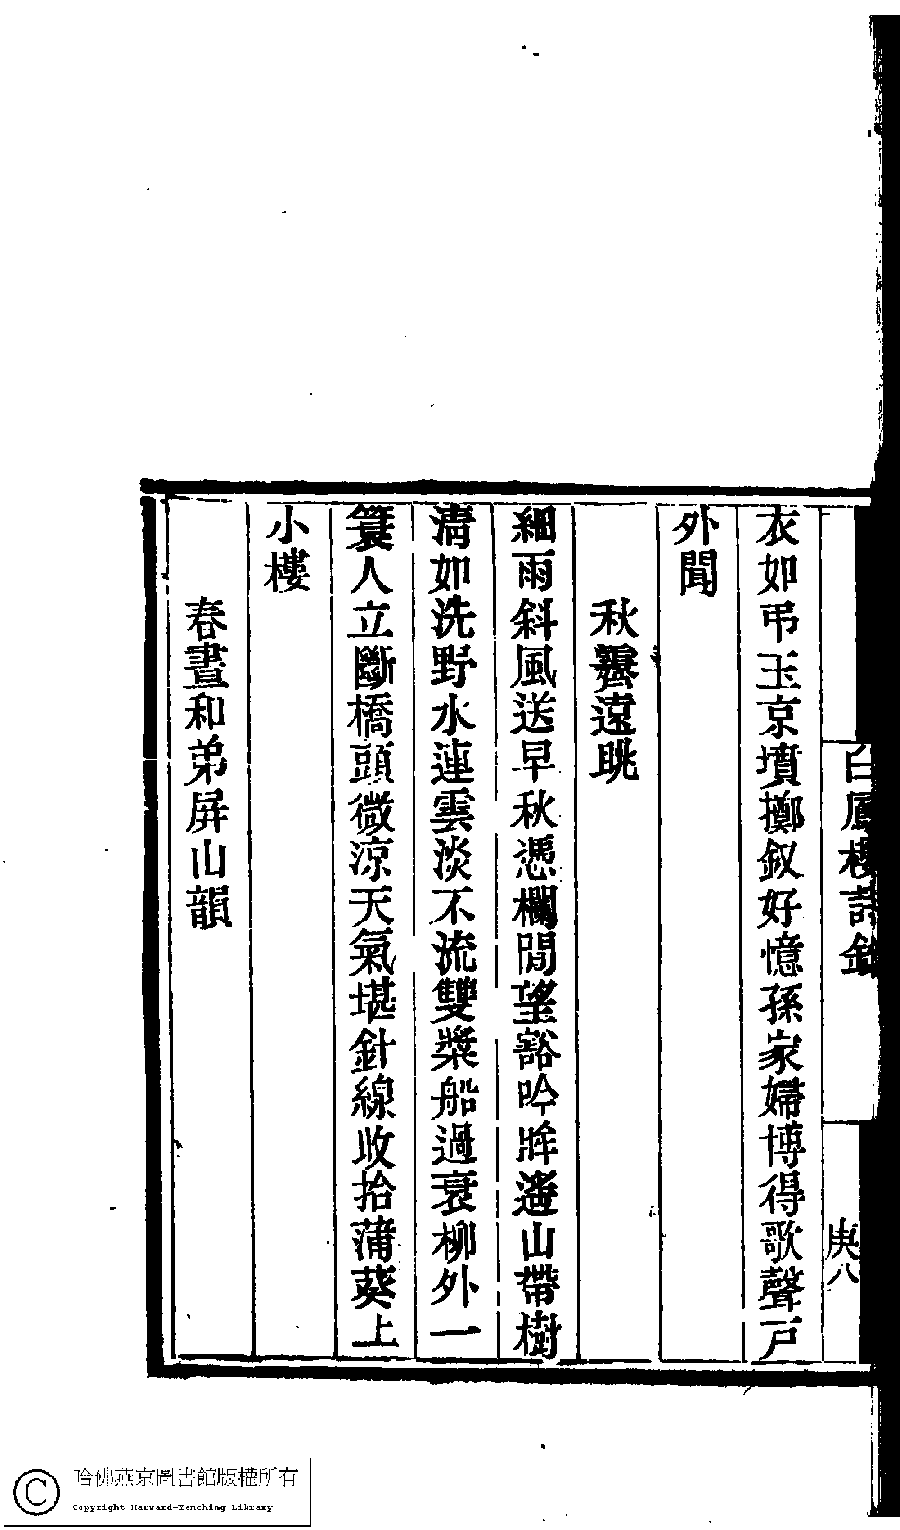 白鳳樓詩鈔
庚八
衣如弔玉京墳擲釵好憶孫家婦博得歌聲戸
外聞
秋霽遠眺
細雨斜風送早秋憑欄閒望豁吟眸遙山帶樹
清如洗野水連雲淡不流雙槳船過衰柳外一
簑人立斷橋頭微涼天氣堪針線收拾蒲葵上
小樓
春晝和弟屏山韻
哈佛燕京圖書館版權所有
Copyright Harvard-Yenching Library